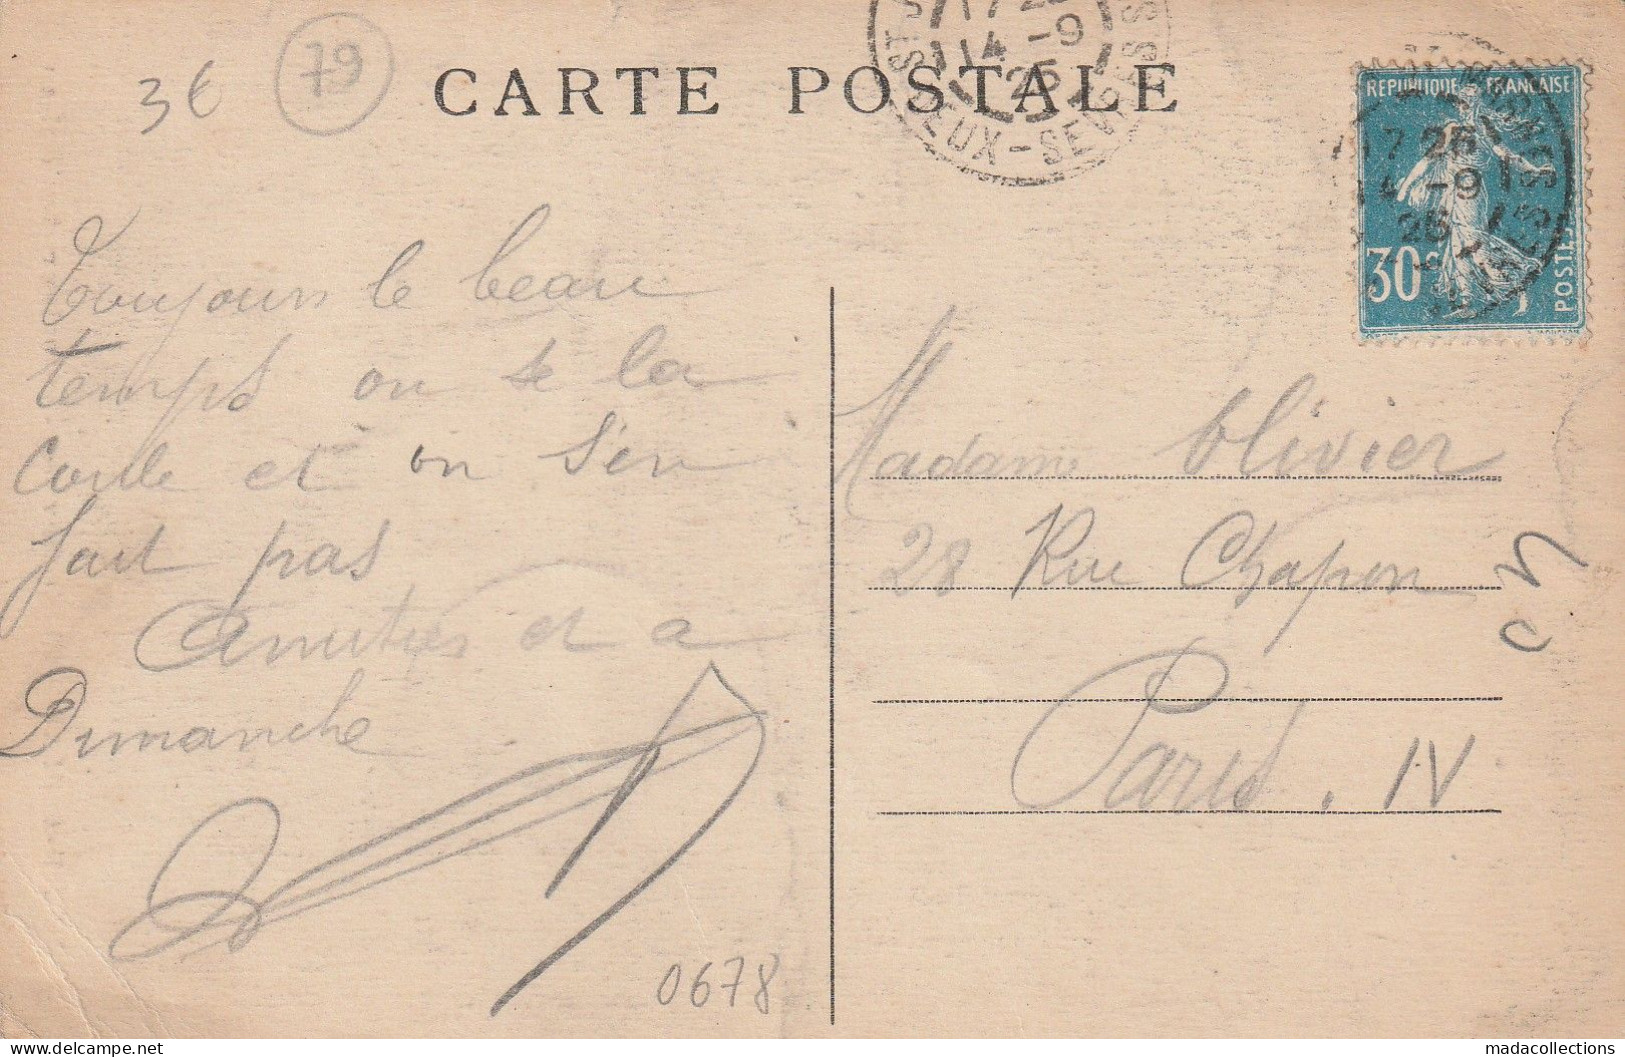 3€
79
CARTE POSTALE
17 25
14 -9
25
DEUX-SEVRES
REPUBLIQUE FRANÇAISE
17 25
14 -9
25
30c
POSTES
Toujours le beau
temps on se la
coule et on s'en
fait pas
Amitiés et a
Dimanche
Madame Olivier
28 Rue Chapon
Paris. IV
0678
www.delcampe.net
madacollections